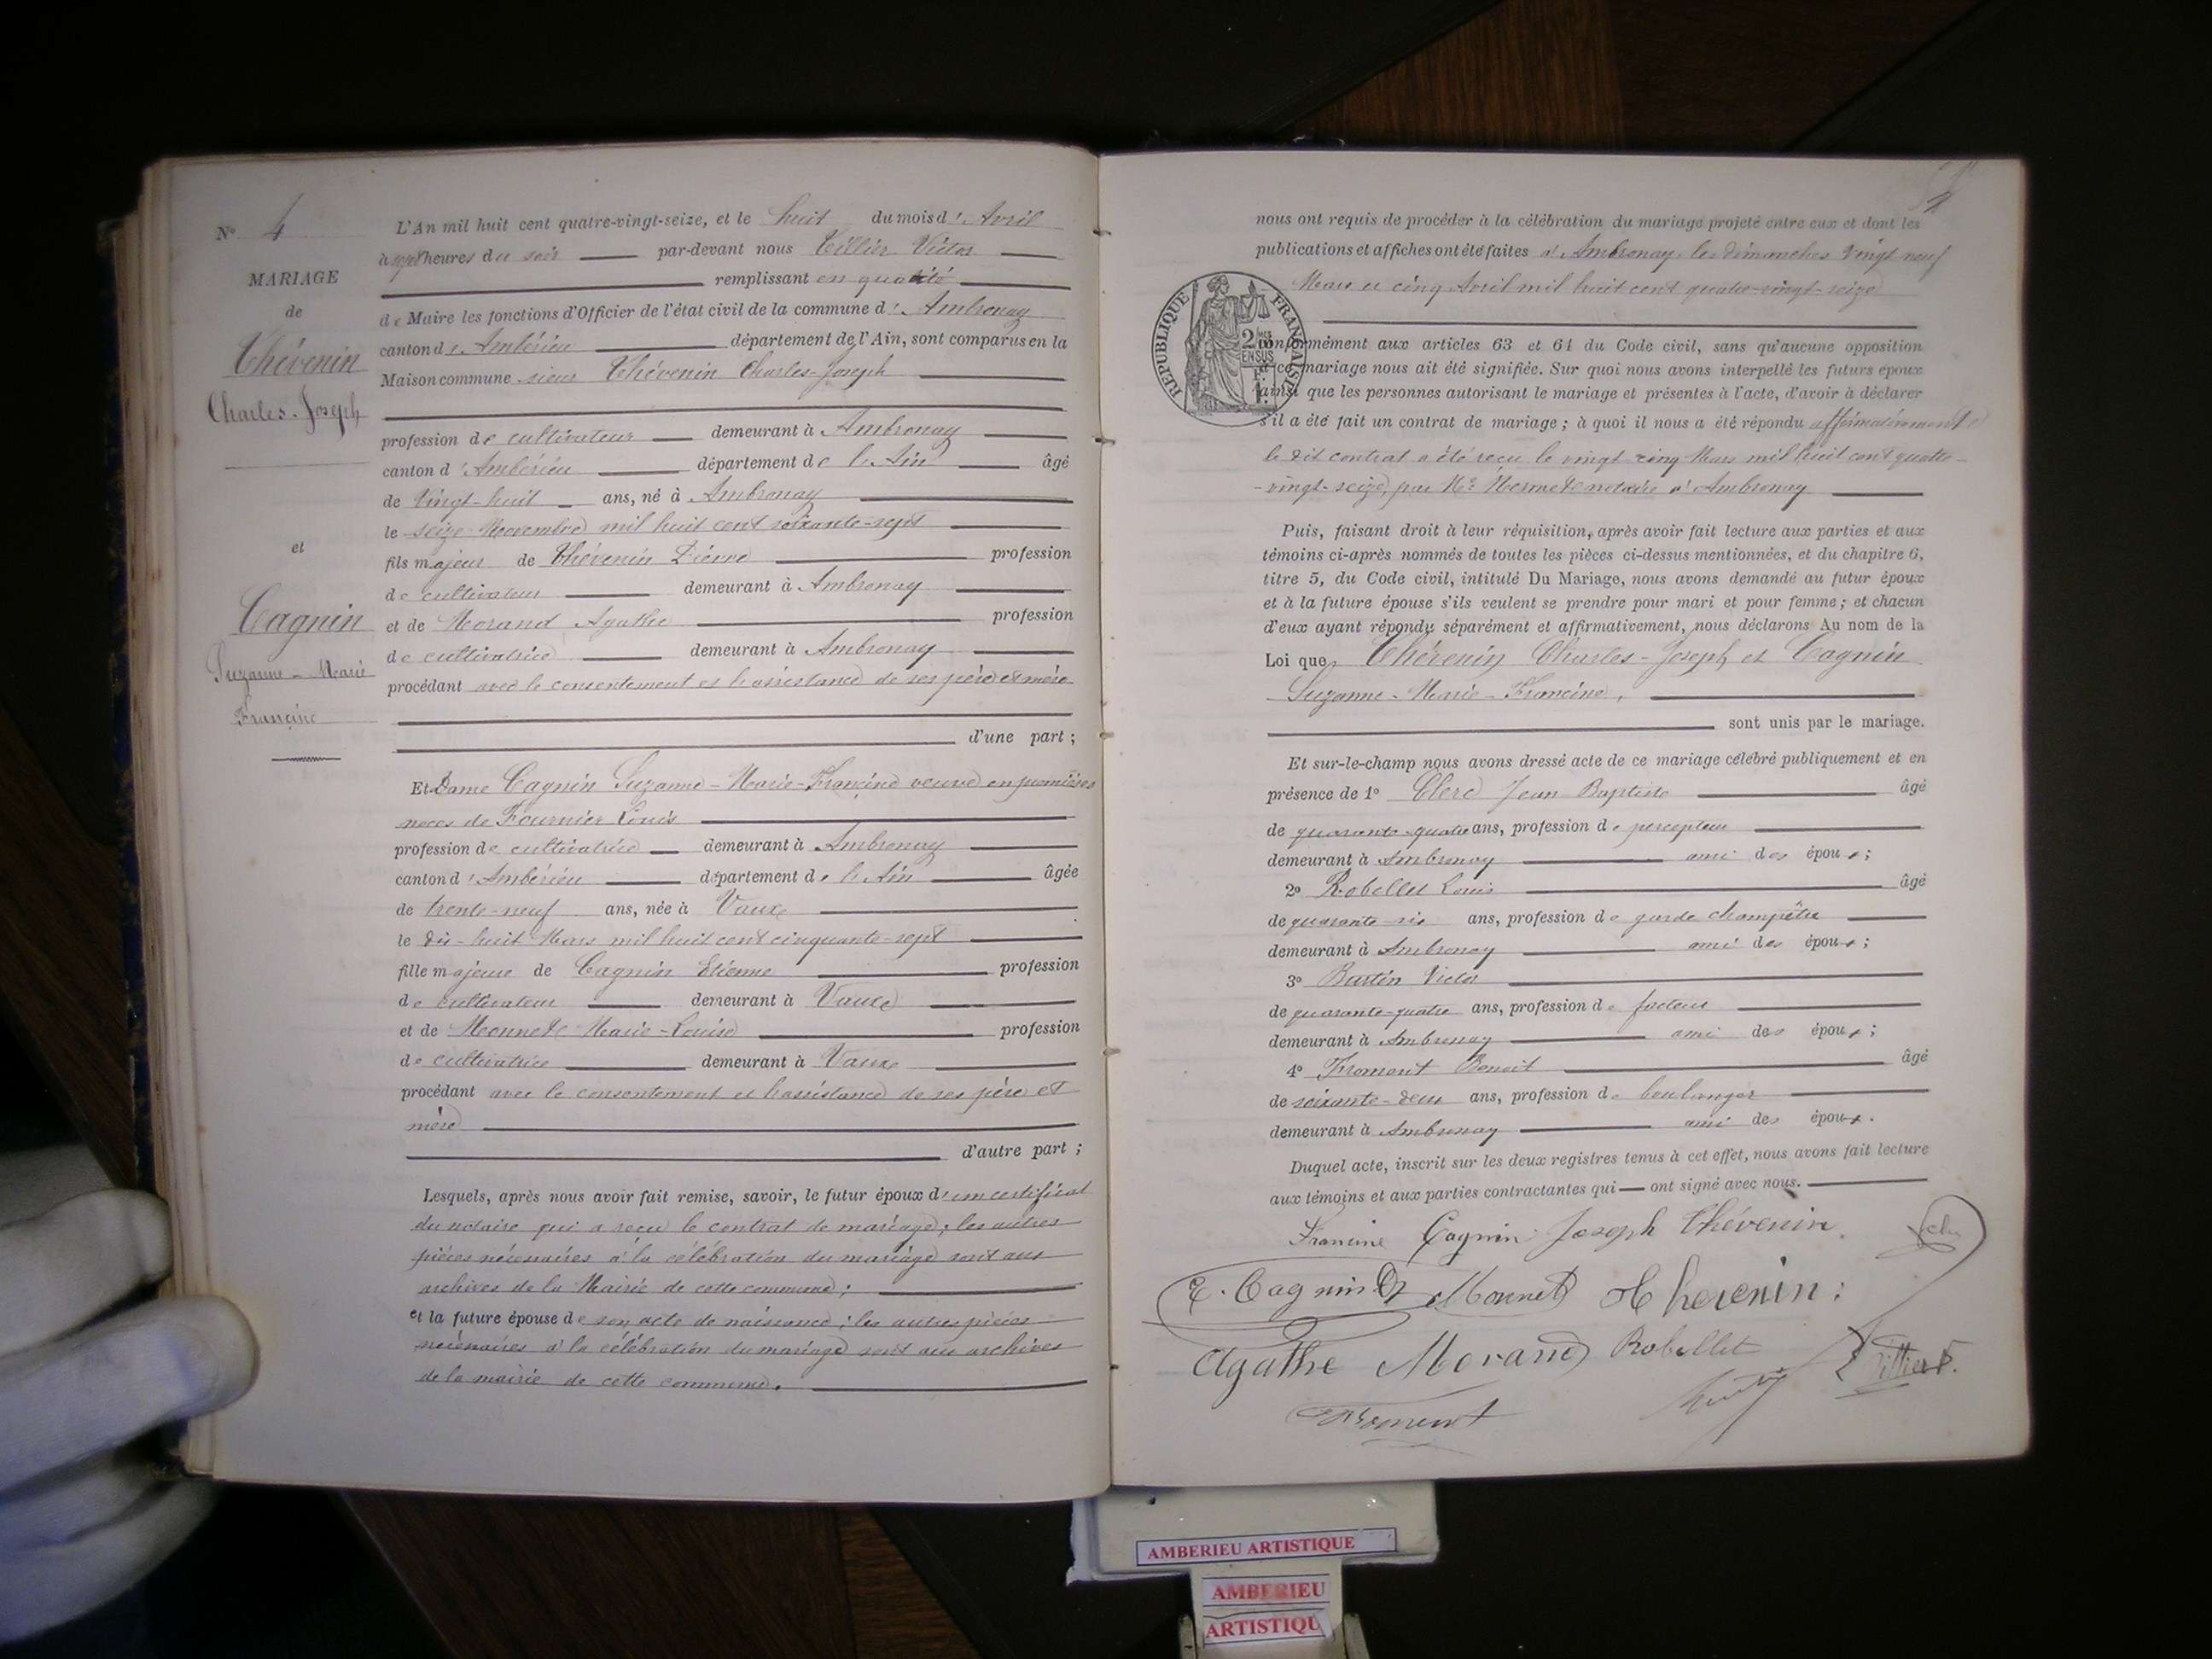 N° 4
MARIAGE
de
Thévenin
Charles-Joseph
et
Cagnin
Suzanne-Marie
Francine
L'An mil huit cent quatre-vingt-seize, et le huit du mois d'Avril
à sept heures du soir par-devant nous Tillier Victor
remplissant en qualité
de Maire les fonctions d'Officier de l'état civil de la commune d'Ambronay
canton d'Ambérieu département de l'Ain, sont comparus en la
Maison commune sieur Thévenin Charles-Joseph
profession de cultivateur demeurant à Ambronay
canton d'Ambérieu département de l'Ain âgé
de vingt-huit ans, né à Ambronay
le seize Novembre mil huit cent soixante-sept
fils majeur de Thévenin Pierre profession
de cultivateur demeurant à Ambronay
et de Morand Agathe profession
de cultivatrice demeurant à Ambronay
procédant avec le consentement et l'assistance de ses père et mère
d'une part ;
Et Dame Cagnin Suzanne-Marie-Francine veuve en premières
noces de Fournier Louis
profession de cultivatrice demeurant à Ambronay
canton d'Ambérieu département de l'Ain âgée
de trente-neuf ans, née à Vaux
le dix-huit Mars mil huit cent cinquante-sept
fille majeure de Cagnin Etienne profession
de cultivateur demeurant à Vaux
et de Monnet Marie-Louise profession
de cultivatrice demeurant à Vaux
procédant avec le consentement et l'assistance de ses père et
mère
d'autre part ;
Lesquels, après nous avoir fait remise, savoir, le futur époux d'un certificat
du notaire qui a reçu le contrat de mariage ; les autres
pièces nécessaires à la célébration du mariage sont aux
archives de la Mairie de cette commune ;
et la future épouse de son acte de naissance ; les autres pièces
nécessaires à la célébration du mariage sont aux archives
de la mairie de cette commune.
nous ont requis de procéder à la célébration du mariage projeté entre eux et dont les
publications et affiches ont été faites à Ambronay les dimanches vingt-neuf
Mars et cinq Avril mil huit cent quatre-vingt-seize
REPUBLIQUE FRANÇAISE
conformément aux articles 63 et 64 du Code civil, sans qu'aucune opposition
à ce mariage nous ait été signifiée. Sur quoi nous avons interpellé les futurs époux
ainsi que les personnes autorisant le mariage et présentes à l'acte, d'avoir à déclarer
s'il a été fait un contrat de mariage ; à quoi il nous a été répondu affirmativement
le dit contrat a été reçu le vingt cinq Mars mil huit cent quatre-
-vingt-seize, par Me notaire à Ambronay
Puis, faisant droit à leur réquisition, après avoir fait lecture aux parties et aux
témoins ci-après nommés de toutes les pièces ci-dessus mentionnées, et du chapitre 6,
titre 5, du Code civil, intitulé Du Mariage, nous avons demandé au futur époux
et à la future épouse s'ils veulent se prendre pour mari et pour femme ; et chacun
d'eux ayant répondu séparément et affirmativement, nous déclarons Au nom de la
Loi que Thévenin Charles-Joseph et Cagnin
Suzanne-Marie-Francine,
sont unis par le mariage.
Et sur-le-champ nous avons dressé acte de ce mariage célébré publiquement et en
présence de 1° Clerc Jean Baptiste âgé
de quarante-quatre ans, profession de percepteur
demeurant à Ambronay ami des époux ;
2° Robellet Louis âgé
de quarante-six ans, profession de garde champêtre
demeurant à Ambronay ami des époux ;
3° Bartin Victor
de quarante-quatre ans, profession de facteur
demeurant à Ambronay ami des époux ;
4° Froment Benoit âgé
de soixante-deux ans, profession de boulanger
demeurant à Ambronay ami des époux.
Duquel acte, inscrit sur les deux registres tenus à cet effet, nous avons fait lecture
aux témoins et aux parties contractantes qui ont signé avec nous.
Francine Cagnin Joseph Thévenin
E. Cagnin Monnet Thevenin
Agathe Morand Robellet
Froment
AMBERIEU ARTISTIQUE
AMBERIEU
ARTISTIQU